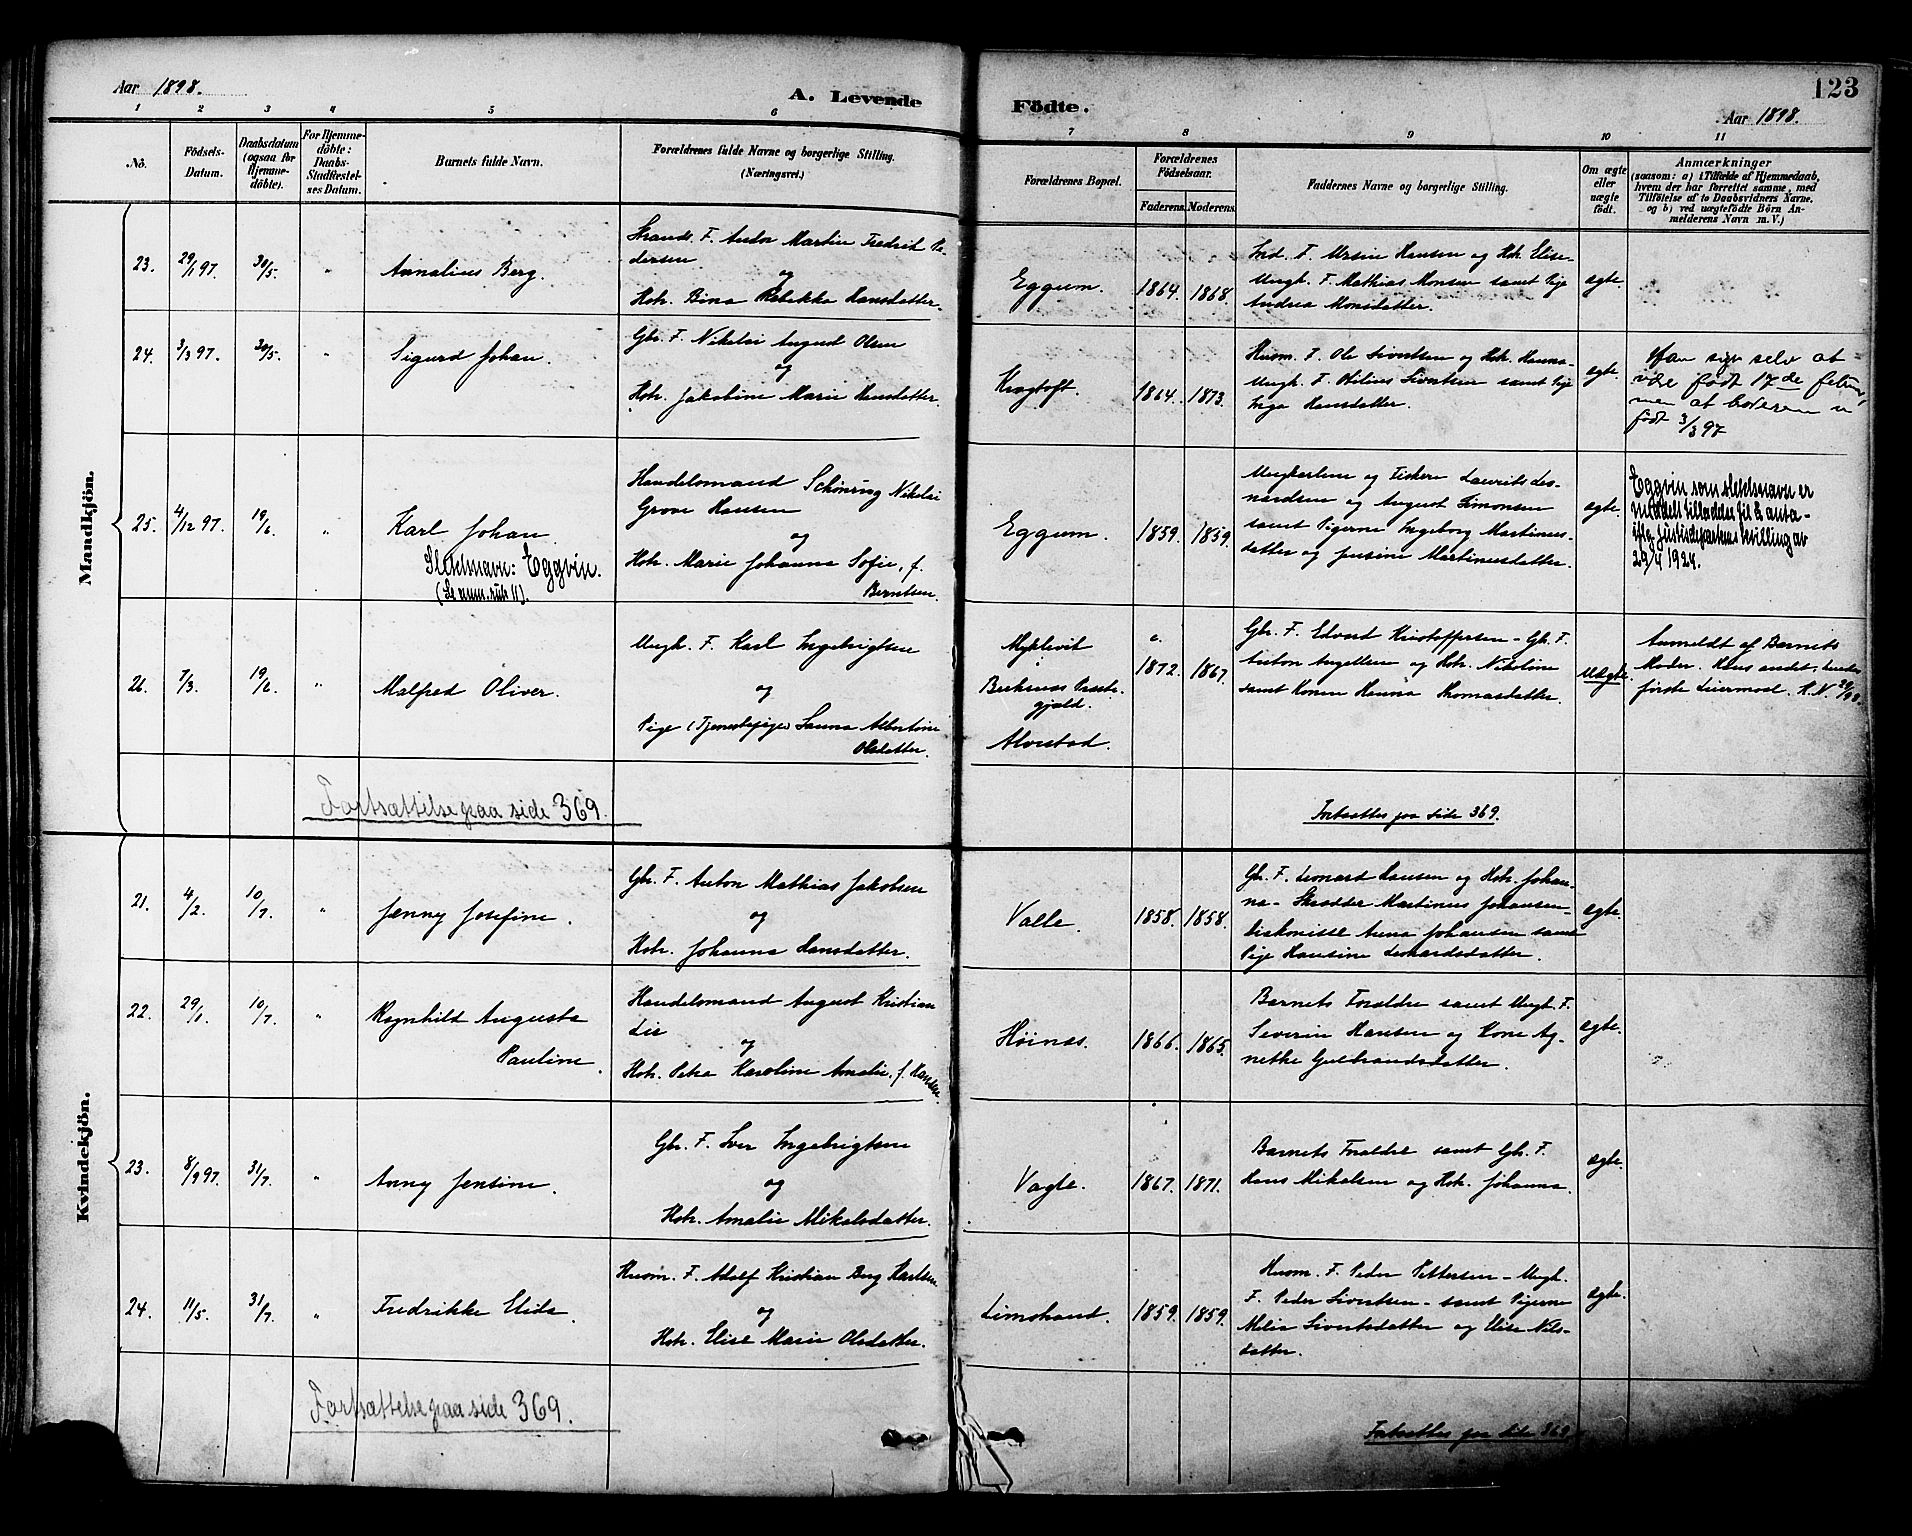 Aar 1898.
A. Levende Födte.
123
Aar 1898.
1 2 3 4 5 6 7 8 9 10 11
No.
Födsels-Datum.
Daabsdatum (ogsaa for Hjemme-döbte).
For Hjemme-döbte: Daabs-Stadfæstel-ses Datum.
Barnets fulde Navn.
Forældrenes fulde Navne og borgerlige Stilling.
(Næringsvei.)
Forældrenes Bopæl.
Forældrenes Födselsaar.
Faderens. Moderens.
Faddernes Navne og borgerlige Stilling.
Om ægte eller uægte födt.
Anmærkninger
(saasom: a) i Tilfælde af Hjemmedaab,
hvem der har forrettet samme, med
Tilföielse af to Daabsvidners Navne.
og b) ved uægtefödte Börn An-
melderens Navn m. V.)
Mandkjön.
23. 29/1 97. 30/5. " Annalius Berg.
Strands. F. Anton Martin Fredrik Pe-
dersen
og
Hstr. Bina Rebekka Hansdatter.
Eggum. 1864. 1868.
Ind. F. Ursin Hansen og Hstr. Elise-
Ungk. F. Mathias Monsen samt Pige
Andrea Monsdatter.
ægte.
24. 3/3 97. 30/5. " Sigurd Johan.
Gbr. F. Nikolai August Olsen
og
Hstr. Jakobine Marie Hansdatter.
Kragtoft. 1864. 1873.
Husm. F. Ole Sivertsen og Hstr. Hanna-
Ungk. F. Otilius Sivertsen samt Pige
Inga Hansdatter.
ægte.
Han siger selv at
være født 17de februar,
men at være
født 3/3 97
25. 4/12 97. 19/6. " Karl Johan
Slektsnavn: Eggvin.
(Se anm. rubr 11).
Handelsmand Schøning Nikolai
Grove Hansen
og
Hstr. Marie Johanna Sofie, f.
Berntsen.
Eggum. 1859. 1859.
Ungkarlene og Fiskere Laurits Leo-
nardsen og August Simonsen
samt Pigerne Ingeborg Martinus-
datter og Jensine Martinusdatter.
ægte.
Eggvin som slektsnavn er
meddelt tilladelse til å anta-
ifølge Justisdepartem. bevilling av
29/4 1924.
26. 7/3. 19/6. " Malfred Oliver.
Ungk. F. Karl Ingebrigtsen
og
Pige (Tjenestepige) Launa Albertine
Olsdatter.
Myklevik
i
Buksnes Præste-
gjæld.
Alvestad.
c. 1872. 1867.
Gbr. F. Edvard Kristoffersen - Gbr. F.
Anton Angellsen og Hstr. Nikoline
samt Konen Hanna Thomasdatter.
Uægte.
Anmeldt af Barnets
Moder. Hans andet, hendes
første Leiermaal. K. N. 20/98.
Fortsættelse paa side 369.
Fortsættes paa side 369.
Kvindekjön.
21. 4/2. 10/7. " Jenny Josefine.
Gbr. F. Anton Mathias Jakobsen
og
Hstr. Johanna Hansdatter.
Valle. 1858. 1858.
Gbr. F. Leonard Hansen og Hstr. Johan-
na - Skrædder Martinus Johansen -
Diakonisse Anna Johansen samt
Pige Hansine Leonardsdatter.
ægte.
22. 29/1. 10/7. " Ragnhild Augusta
Pauline.
Handelsmand August Kristian
Lie
og
Hstr. Petra Karoline Amalie, f. Hansen.
Høinæs. 1866. 1865.
Barnets Forældre samt Ungk. F.
Severin Hansen og Kone Ag-
nethe Gulbrandsdatter.
ægte.
23. 8/9 97. 31/7. " Anny Jensine.
Gbr. F. Iver Ingebrigtsen
og
Hstr. Amalie Mikalsdatter.
Vagle. 1867. 1871.
Barnets Forældre samt Gbr. F.
Hans Mikalsen og Hstr. Johanna.
ægte.
24. 11/5. 31/7. " Fredrikke Elida.
Husm. F. Adolf Kristian Berg Karlsen
og
Hstr. Elise Marie Olsdatter.
Limstrand. 1859. 1859.
Husm. F. Peder Pettersen - Ungk.
F. Peder Sivertsen - samt Pigerne
Melia Sivertsdatter og Elise Nils-
datter.
ægte.
Fortsættelse paa side 369.
Fortsættes paa side 369